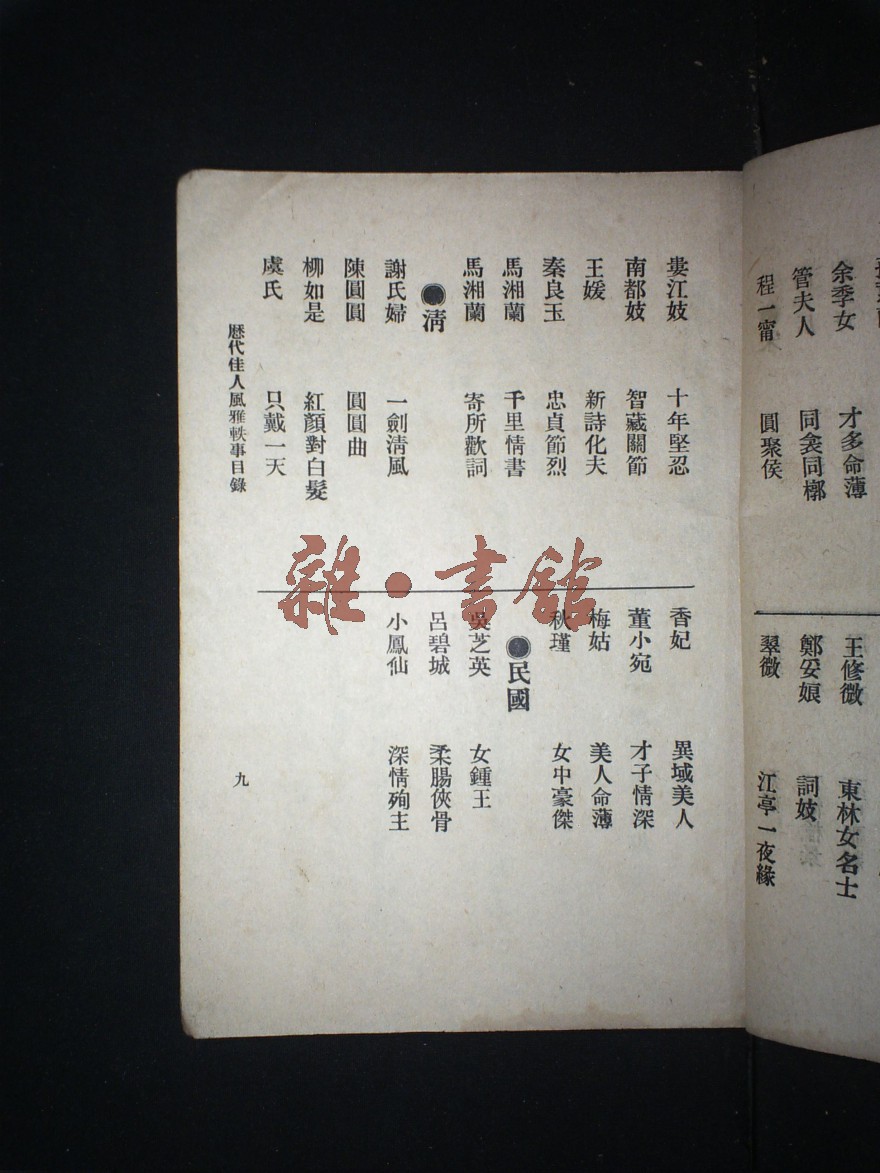 余季女　才多命薄
管夫人　同衾同槨
程一甯　圓聚侯
王修微　東林女名士
鄭妥娘　詞妓
翠微　江亭一夜緣
婁江妓　十年堅忍
南都妓　智藏關節
王媛　新詩化夫
秦良玉　忠貞節烈
馬湘蘭　千里情書
馬湘蘭　寄所歡詞
●清
謝氏婦　一劍清風
陳圓圓　圓圓曲
柳如是　紅顏對白髮
虞氏　只戴一天
香妃　異域美人
董小宛　才子情深
梅姑　美人命薄
秋瑾　女中豪傑
●民國
吳芝英　女鍾王
呂碧城　柔腸俠骨
小鳳仙　深情殉主
歷代佳人風雅軼事目錄
九
雜·書館